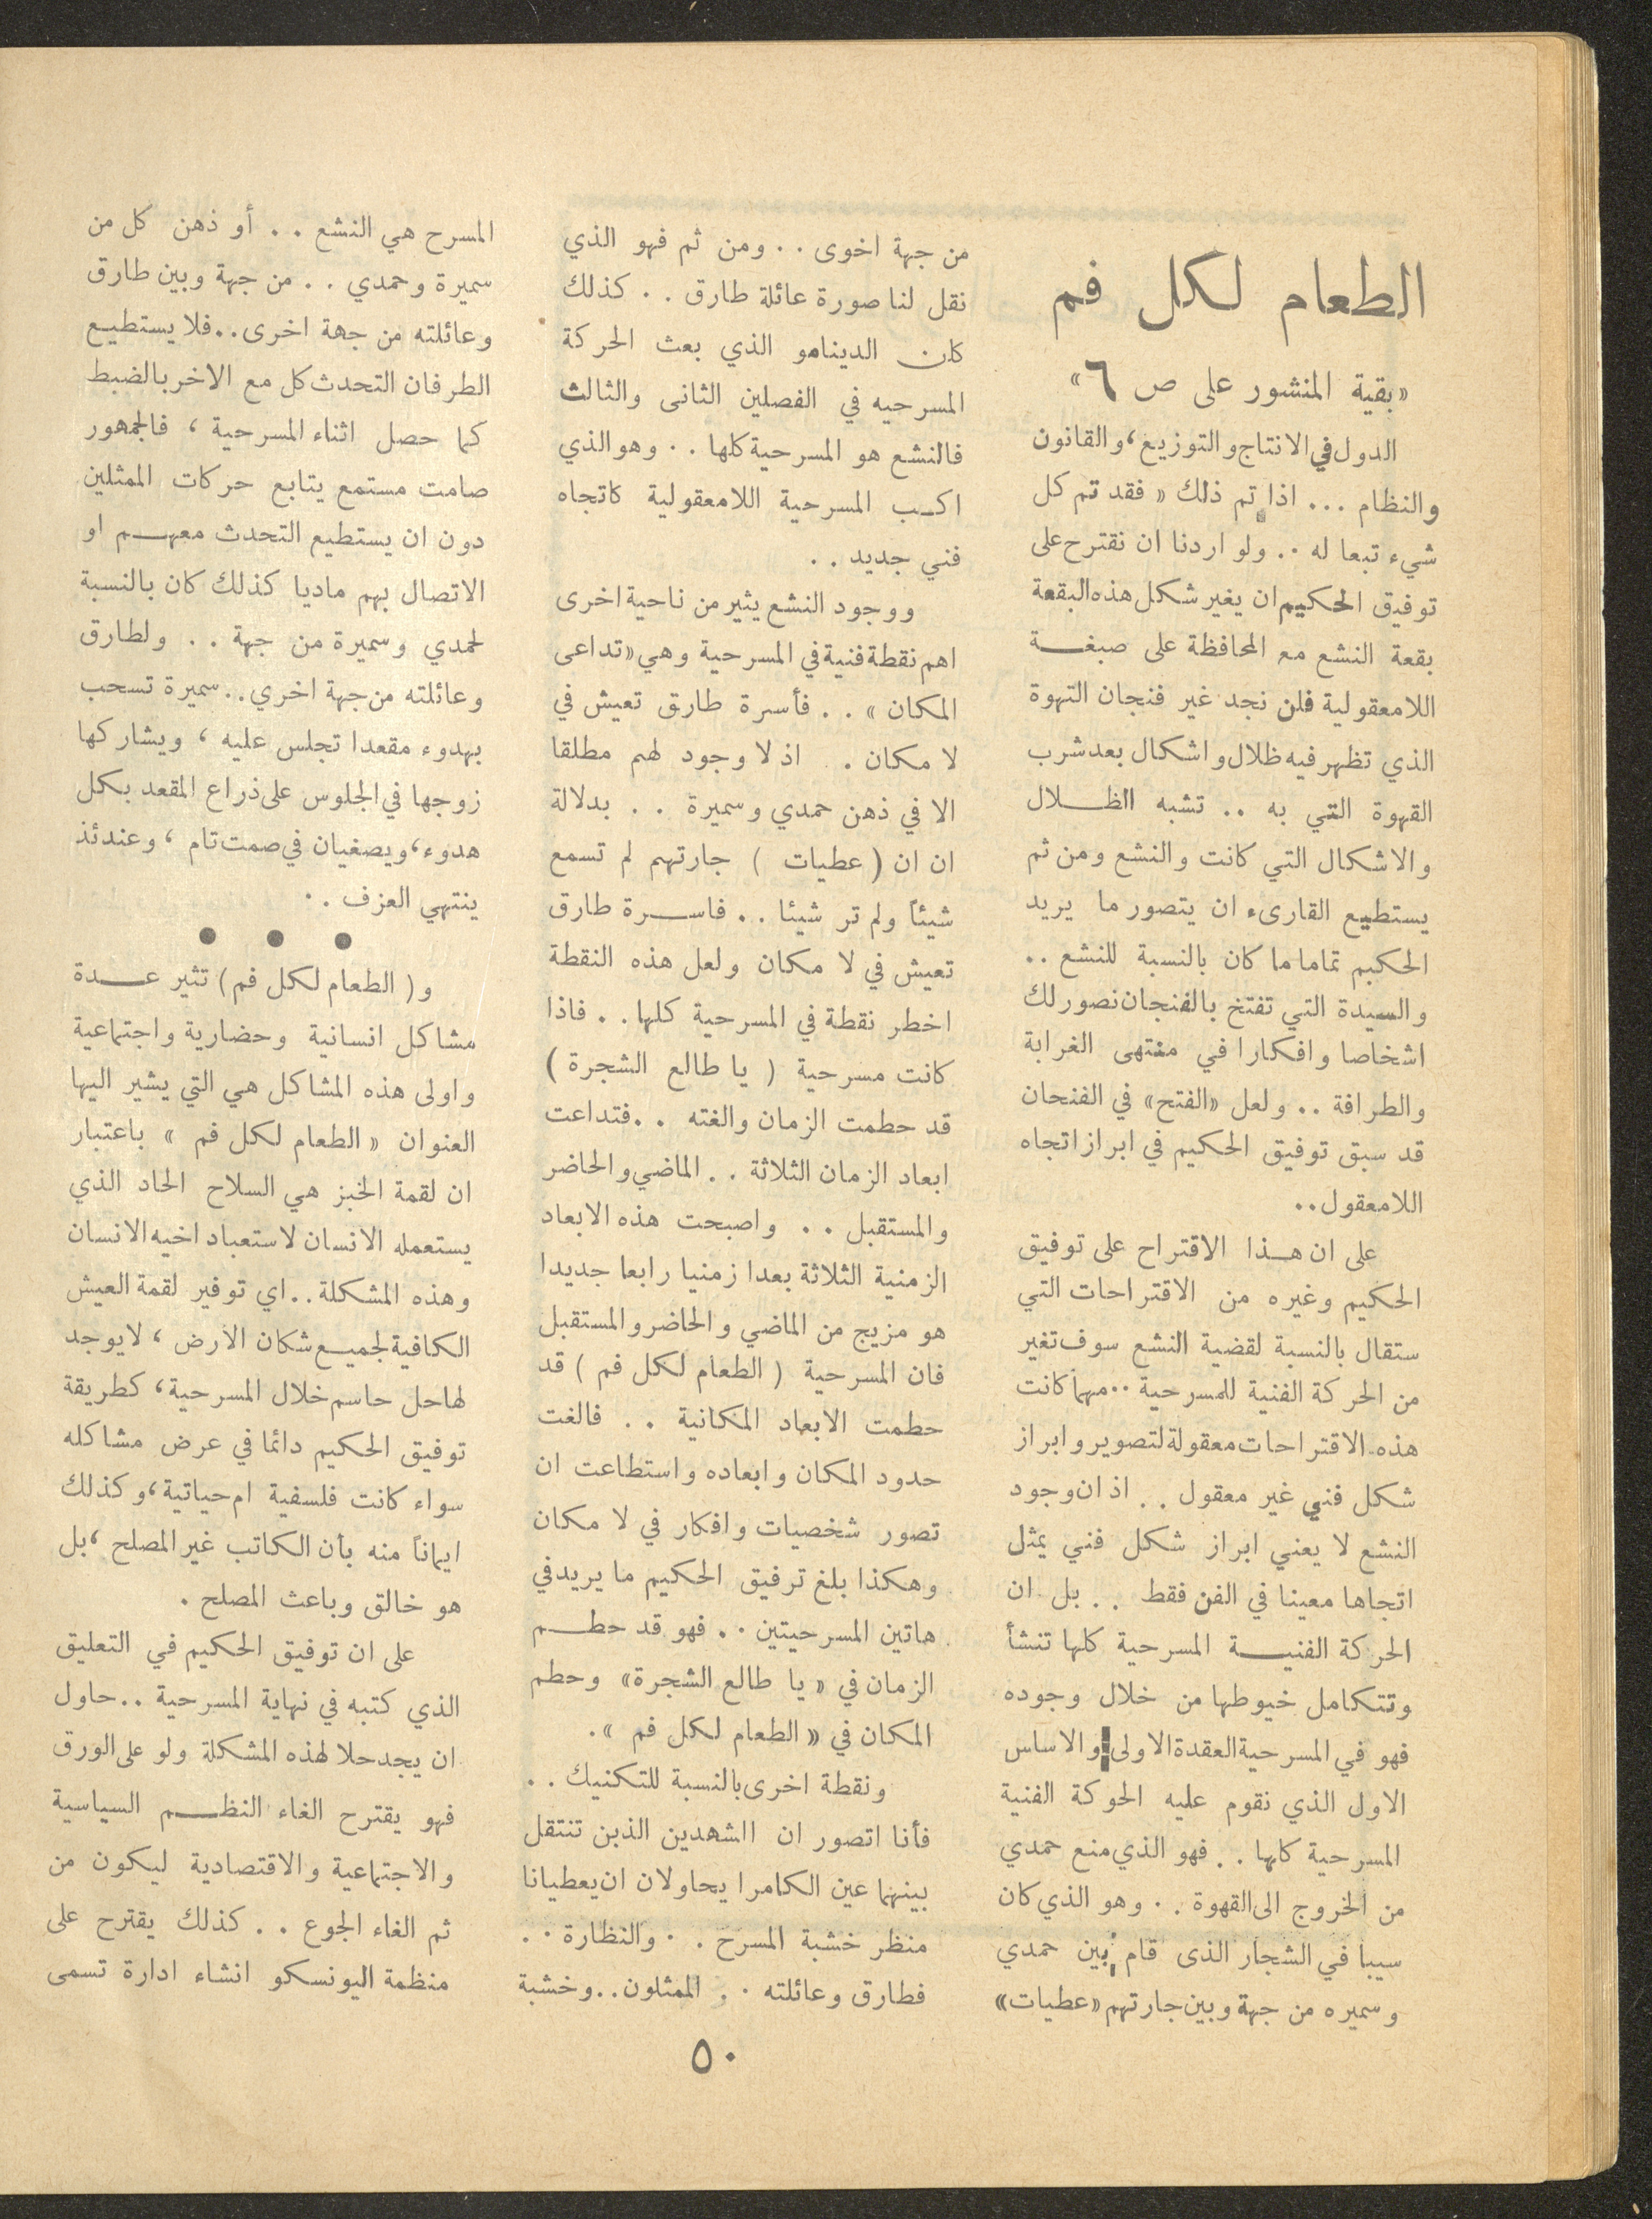 الطعام لكل فم
«بقية المنشور على ص ٦»
الدول في الانتاج والتوزيع، والقانون
والنظام ... اذا تم ذلك « فقد تم كل
شيء تبعا له .. ولو اردنا ان نقترح على
توفيق الحكيم ان يغير شكل هذه البقعة
بقعة النشع مع المحافظة على صبغة
اللامعقولية فلن نجد غير فنجان التهوة
الذي تظهر فيه ظلال واشكال بعد شرب
القهوة التي به .. تشبه الظلال
والاشكال التي كانت والنشع ومن ثم
يستطيع القارىء ان يتصور ما يريد
الحكيم تماما ما كان بالنسبة للنشع ..
والسيدة التي تفتخ بالفنجان نصور لك
اشخاصا وافكارا في منتهى الغرابة
والطرافة .. ولعل «الفتح» في الفنحان
قد سبق توفيق الحكيم في ابراز اتجاه
اللامعقول ..
على ان هذا الاقتراح على توفيق
الحكيم وغيره من الاقتراحات التي
ستقال بالنسبة لقضية النشع سوف تغير
من الحركة الفنية للمسرحية .. مهما كانت
هذه الاقتراحات معقولة لتصوير وابراز
شكل فني غير معقول .. اذ ان وجود
النشع لا يعني ابراز شكل فني يمثل
اتجاها معينا في الفن فقط .. بل ان
الحركة الفنية المسرحية كلها تنشأ
وتتكامل خيوطها من خلال وجوده
فهو في المسرحية العقدة الاولى والاساس
الاول الذي نقوم عليه الحوكة الفنية
المسرحية كلها .. فهو الذي منع حمدي
من الخروج الى القهوة .. وهو الذي كان
سيبا في الشجار الذى قام بين حمدي
وسميره من جهة وبين جارتهم «عطيات»
من جهة اخوى .. ومن ثم فهو الذي
نقل لنا صورة عائلة طارق .. كذلك
كان الدينامو الذي بعث الحركة
المسرحيه في الفصلين الثانى والثالث
فالنشع هو المسرحية كلها .. وهو الذي
اكسب المسرحية اللامعقولية كاتجاه
فني جديد ..
ووجود النشع يثير من ناحية اخرى
اهم نقطة فنية في المسرحية وهي «تداعى
المكان » .. فأسرة طارق تعيش في
لا مكان . اذ لا وجود لهم مطلقا
الا في ذهن حمدي وسميرة .. بدلالة
ان ان ( عطيات ) جارتهم لم تسمع
شيئاً ولم تر شيئا .. فاسرة طارق
تعيش في لا مكان ولعل هذه النقطة
اخطر نقطة في المسرحية كلها .. فاذا
كانت مسرحية ( يا طالع الشجرة )
قد حطمت الزمان والغته .. فتداعت
ابعاد الزمان الثلاثة .. الماضي والحاضر
والمستقبل .. واصبحت هذه الابعاد
الزمنية الثلاثة بعدا زمنيا رابعا جديدا
هو مزيج من الماضي والحاضر والمستقبل
فان المسرحية ( الطعام لكل فم ) قد
حطمت الابعاد المكانية .. فالغت
حدود المكان وابعاده واستطاعت ان
تصور شخصيات وافكار في لا مكان
وهكذا بلغ ترفيق الحكيم ما يريد في
هاتين المسرحيتين .. فهو قد حطم
الزمان في « يا طالع الشجرة» وحطم
المكان في « الطعام لكل فم » .
ونقطة اخرى بالنسبة للتكنيك ..
فأنا اتصور ان الشهدين الذين تنتقل
بينهما عين الكامرا يحاولان ان يعطيانا
منظر خشبة المسرح .. والنظارة ..
فطارق وعائلته .. الممثلون .. وخشبة
المسرح هي النشع .. أو ذهن كل من
سميرة وحمدي .. من جهة وبين طارق
وعائلته من جهة اخرى .. فلا يستطيع
الطرفان التحدث كل مع الاخر بالضبط
كما حصل اثناء المسرحية ، فالجمهور
صامت مستمع يتابع حركات الممثلين
دون ان يستطيع التحدث معهم او
الاتصال بهم ماديا كذلك كان بالنسبة
لحمدي وسميرة من جهة .. ولطارق
وعائلته من جهة اخري .. سميرة تسحب
بهدوء مقعدا تجلس عليه ، ويشاركها
زوجها في الجلوس على ذراع المقعد بكل
هدوء ، ويصغيان في صمت تام ، وعندئذ
ينتهي العزف ..
● ● ●
و ( الطعام لكل فم ) تثير عدة
مشاكل انسانية وحضارية واجتماعية
واولى هذه المشاكل هي التي يشير اليها
العنوان « الطعام لكل فم » باعتبار
ان لقمة الخبز هي السلاح الحاد الذي
يستعمله الانسان لاستعباد اخيه الانسان
وهذه المشكلة .. اي توفير لقمة العيش
الكافية لجميع شكان الارض ، لا يوجد
لها حل حاسم خلال المسرحية ، كطريقة
توفيق الحكيم دائما في عرض مشاكله
سواء كانت فلسفية ام حياتية ، وكذلك
ايماناً منه بأن الكاتب غير المصلح ، بل
هو خالق وباعث المصلح .
على ان توفيق الحكيم في التعليق
الذي كتبه في نهاية المسرحية .. حاول
ان يجد حلا لهذه المشكلة ولو على الورق
فهو يقترح الغاء النظم السياسية
والاجتماعية والاقتصادية ليكون من
ثم الغاء الجوع .. كذلك يقترح على
منظمة اليونسكو انشاء ادارة تسمى
٥٠